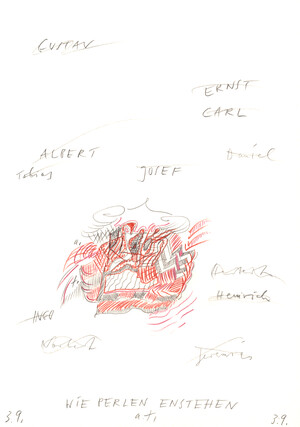 GUSTAV
ERNST
CARL
ALBERT
Daniel
Tobias
JOSEF
Heinrich
HUGO
WIE PERLEN ENSTEHEN
3.9.
3.9.